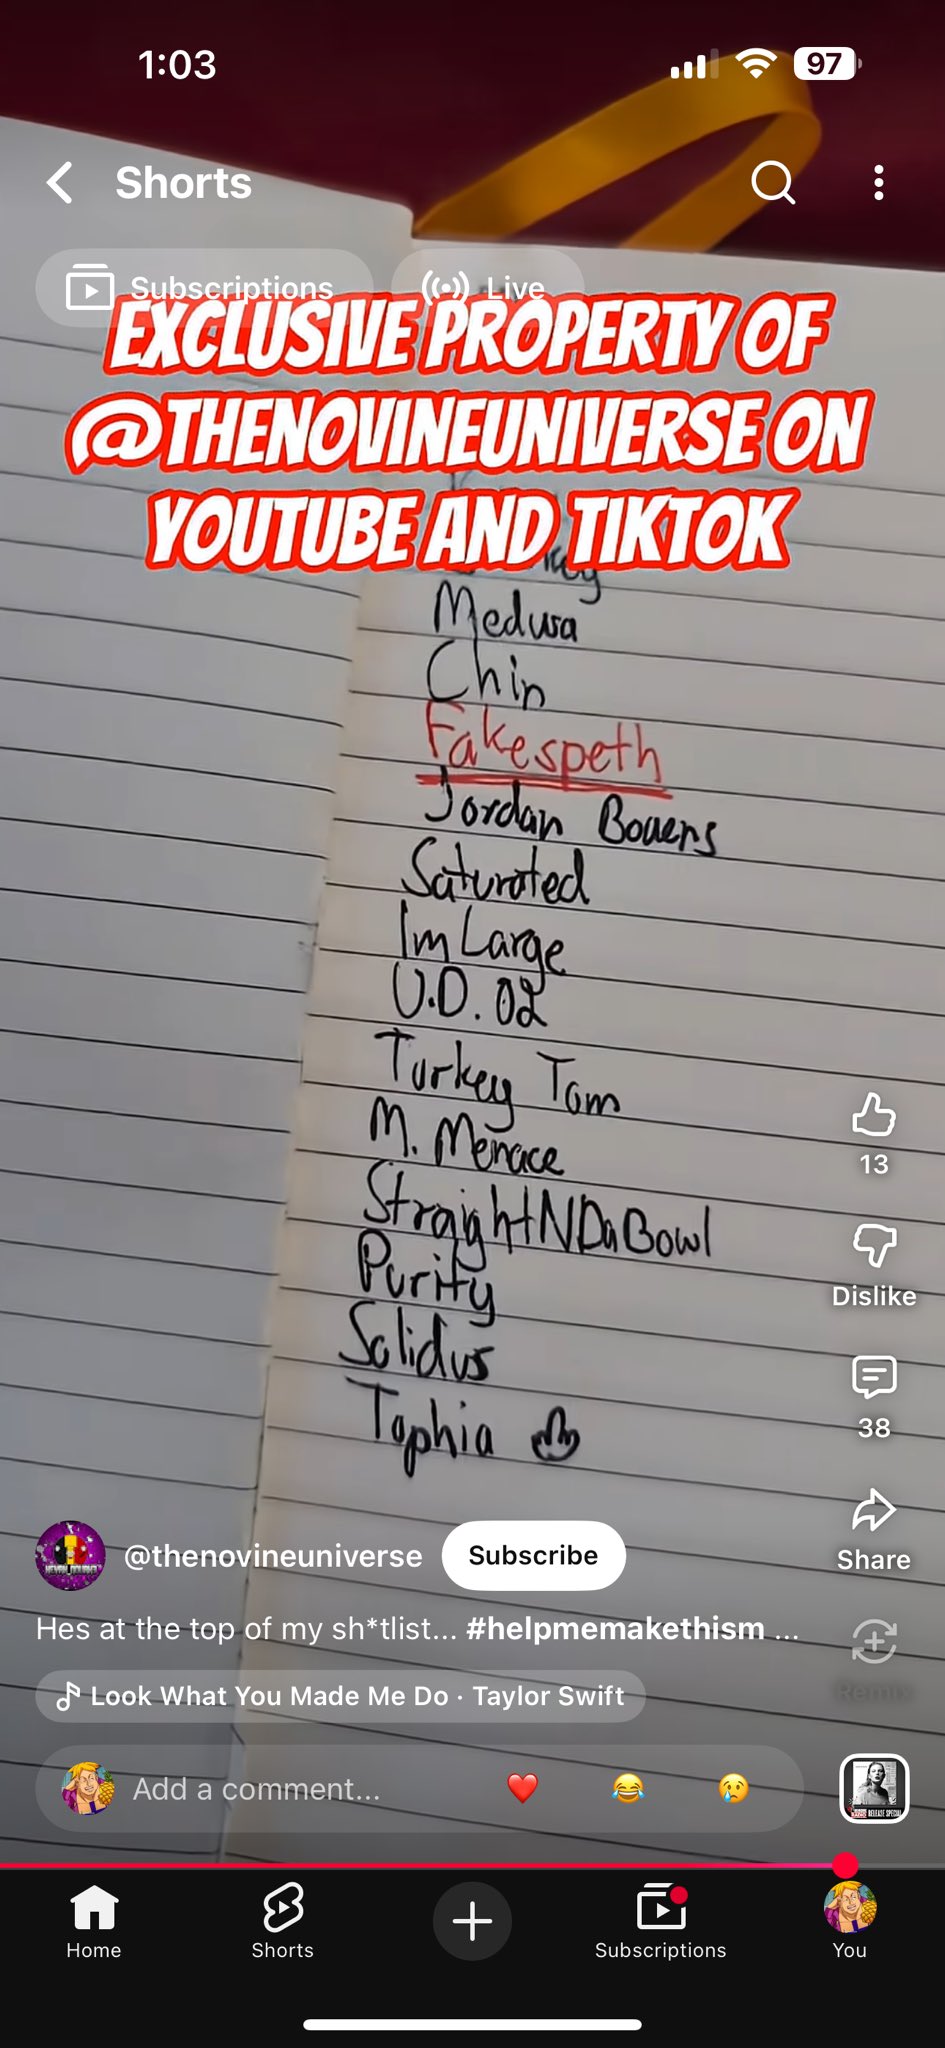 1:03
97
Shorts
Subscriptions
Live
EXCLUSIVE PROPERTY OF
@THENOVINEUNIVERSE ON
YOUTUBE AND TIKTOK
Medusa
Chin
Fakespeth
Jordan Bowers
Saturated
Im Large
U.D. 02
Turkey Tom
M. Menace
StraightNDaBowl
Purity
Solidus
Tophia
13
Dislike
38
Share
Remix
@thenovineuniverse
Subscribe
Hes at the top of my sh*tlist... #helpmemakethism ...
Look What You Made Me Do · Taylor Swift
Add a comment...
Home
Shorts
Subscriptions
You